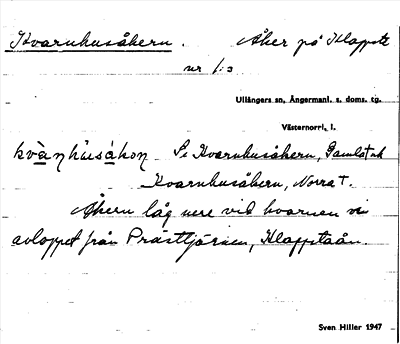 Kvarnhusåkern. Åker på Klappsta
nr 1:3
Ullångers sn, Ångermanl. s. doms. tg.
Västernorrl. l.
kvä̀nhúsåkon Se Kvarnhusåkern, Gamla † och
Kvarnhusåkern, Norra †.
Åkern låg nere vid kvarnen vid
avloppet från Prästtjärnen, Klappstaån.
Sven Hiller 1947